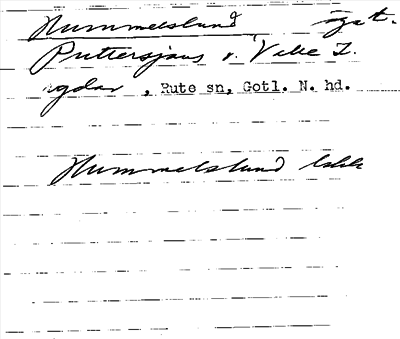 Hummelslund ägt.
Puttersjaus o. Valle T.
ngdar, Rute sn, Gotl. N. hd.
Hummelslund